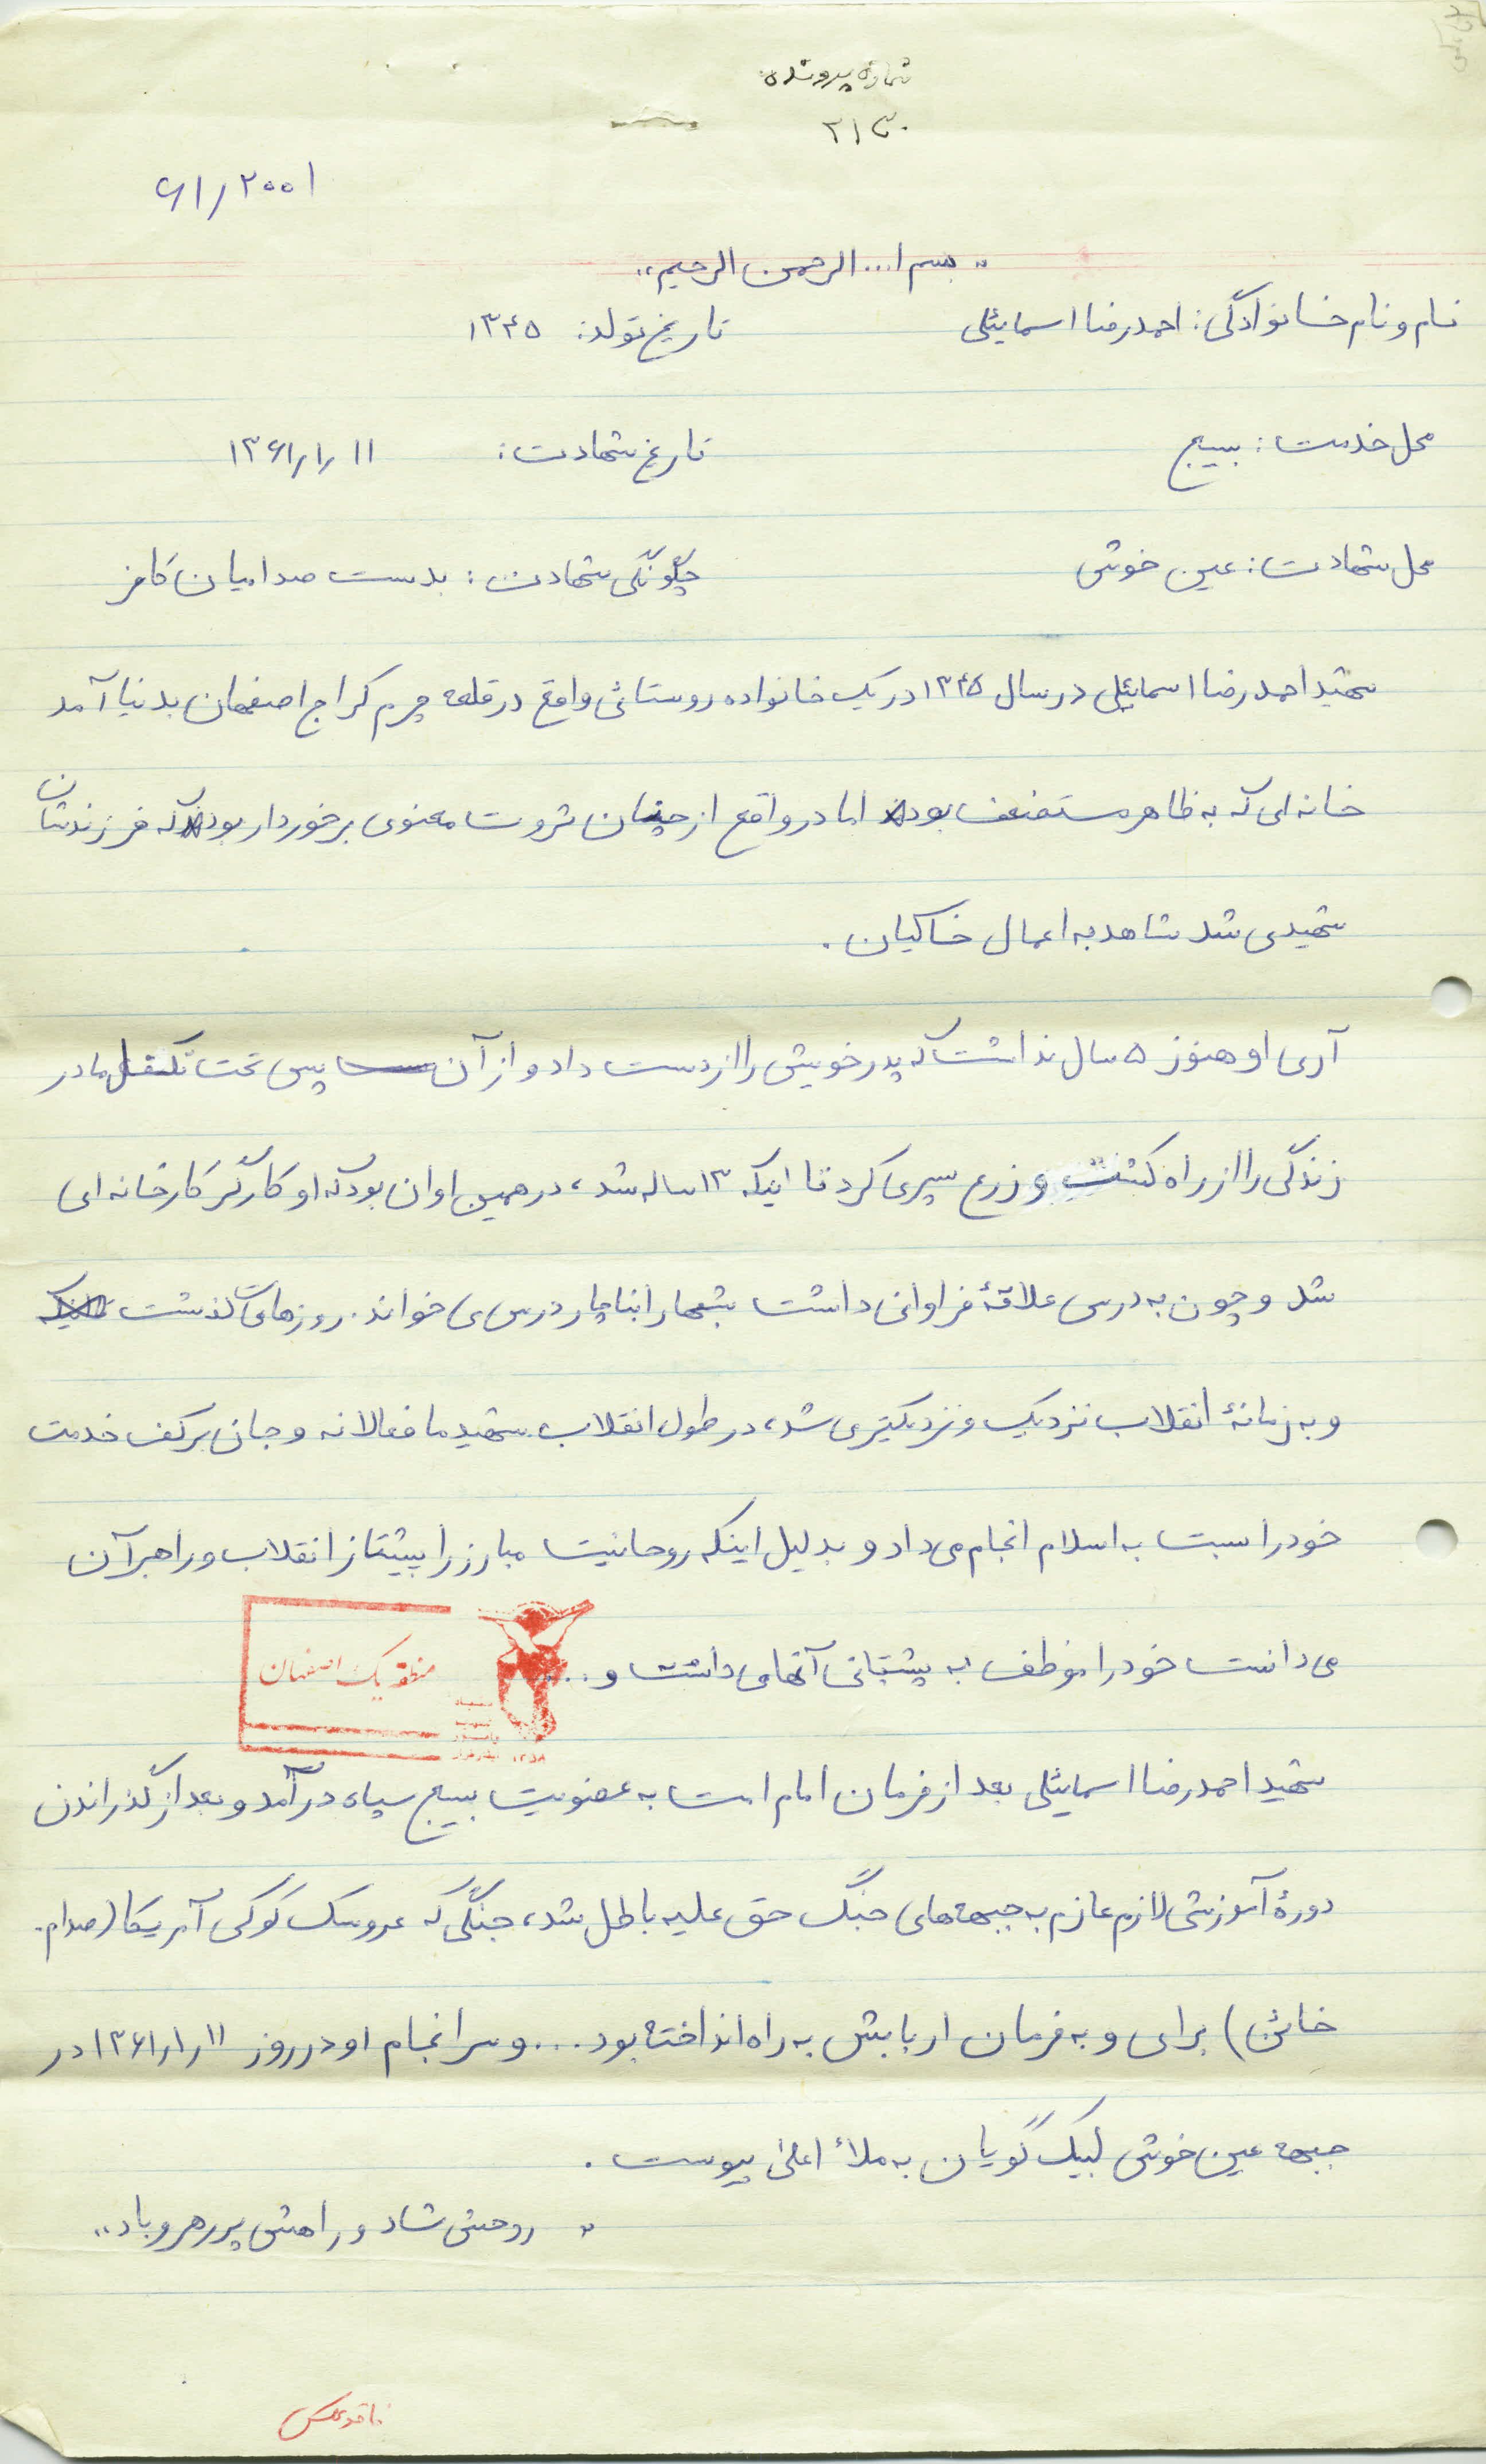 شماره پرونده
۶۱/۲۰۰۱
" بسم ا... الرحمن الرحیم "
نام و نام خانوادگی: احمدرضا اسمائیلی تاریخ تولد: ۱۳۴۵
محل خدمت: بسیج تاریخ شهادت: ۱۳۶۱/۱/۱۱
محل شهادت: عین خوش چگونگی شهادت: بدست صدامیان کافر
شهید احمدرضا اسمائیلی در سال ۱۳۴۵ در یک خانواده روستائی واقع در قلعه چم کراج اصفهان بدنیا آمد
خانه ای که به ظاهر مستضعف بود اما در واقع از چنان ثروت معنوی برخوردار بود که فرزندشان
شهیدی شد شاهد به اعمال خاکیان.
آری او هنوز ۵ سال نداشت که پدر خویش را از دست داد و از آن پس تحت تکفل مادر
زندگی را از راه کشت و زرع سپری کرد تا اینکه ۱۳ ساله شد، در همین اوان بود که او کارگر کارخانه ای
شد و چون به درس علاقهٔ فراوانی داشت شبها را بناچار درس می خواند. روزها می گذشت
و به زمانهٔ انقلاب نزدیک و نزدیکتر می شد، در طول انقلاب شهید ما فعالانه و جان بر کف خدمت
خود را سبت به اسلام انجام می داد و بدلیل اینکه روحانیت مبارز را پیشتاز انقلاب و راهبر آن
می دانست خود را موظف به پشتبانی آنها می داشت و ...
منطقه یک اصفهان
شهید احمدرضا اسمائیلی بعد از فرمان امام امت به عضویت بسیج سپاه در آمد و بعد از گذراندن
دورهٔ آموزشی لازم عازم به جبهه های جنگ حق علیه باطل شد، جنگی که عروسک کوکی آمریکا (صدام
خائن) برای و به فرمان اربابش به راه انداخته بود ... و سرانجام او در روز ۱۳۶۱/۱/۱۱ در
جبهه عین خوش لبیک گویان به ملأ اعلی پیوست.
" روحش شاد و راهش پررهرو باد "
فاقد عکس